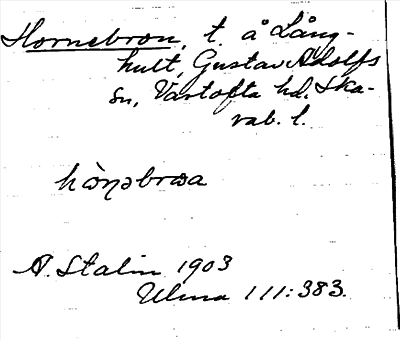 Hornebron, t. å Lång-
hult, Gustav Adolfs
sn, Vartofta hd. Ska-
rab. l.
A. Stalin 1903
Ulma 111:383.